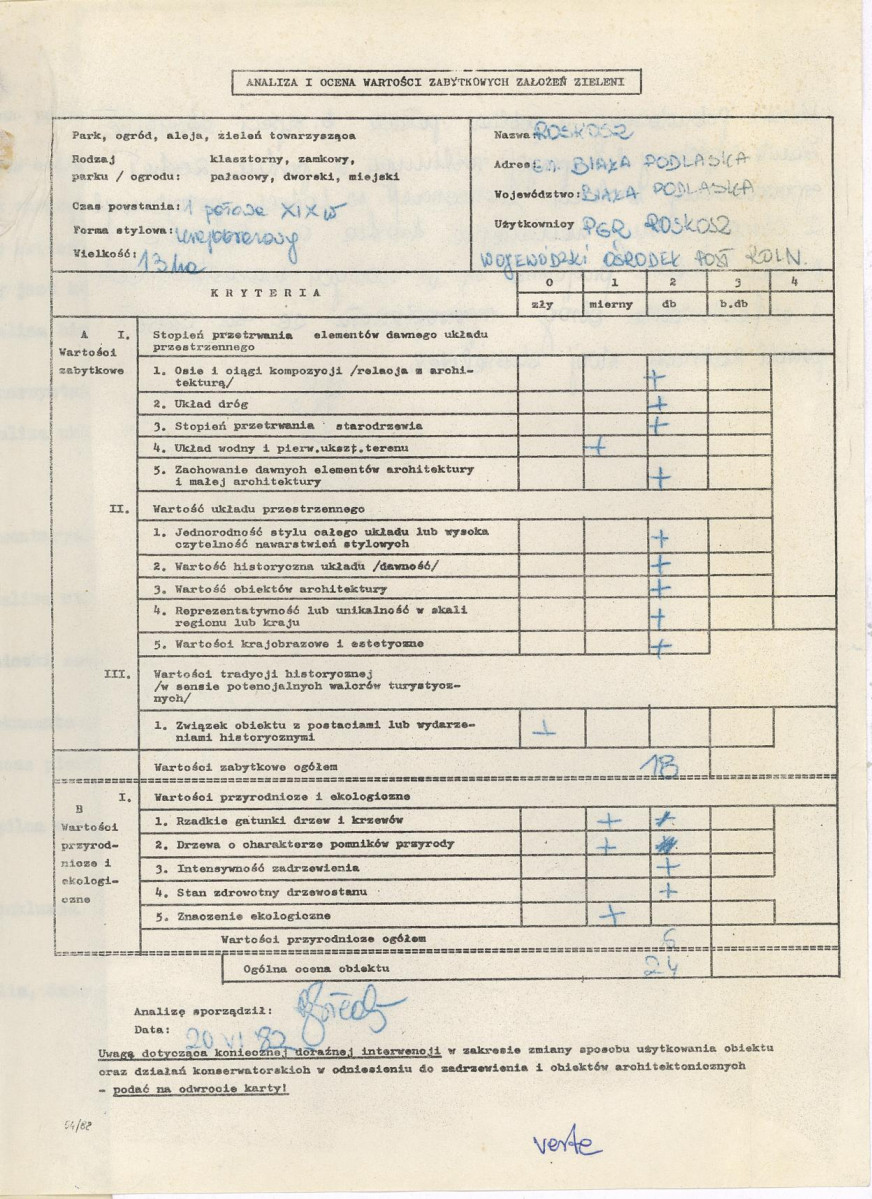 ANALIZA I OCENA WARTOŚCI ZABYTKOWYCH ZAŁOŻEŃ ZIELENI
Park, ogród, aleja, zieleń towarzysząca
Rodzaj klasztorny, zamkowy,
parku / ogrodu: pałacowy, dworski, miejski
Czas powstania: 1 połowa XIX w
Forma stylowa: krajobrazowy
Wielkość: 13 ha
Nazwa: ROSKOSZ
Adres: gm. BIAŁA PODLASKA
Województwo: BIAŁA PODLASKA
Użytkownicy PGR ROSKOSZ
WOJEWÓDZKI OŚRODEK POST. ROLN.
KRYTERIA
0 1 2 3 4
zły mierny db b.db
A
Wartości
zabytkowe
I. Stopień przetrwania elementów dawnego układu
przestrzennego
1. Osie i ciągi kompozycji /relacja z archi-
tekturą/ +
2. Układ dróg +
3. Stopień przetrwania starodrzewia +
4. Układ wodny i pierw.ukszt.terenu +
5. Zachowanie dawnych elementów architektury
i małej architektury +
II. Wartość układu przestrzennego
1. Jednorodność stylu całego układu lub wysoka
czytelność nawarstwień stylowych +
2. Wartość historyczna układu /dawność/ +
3. Wartość obiektów architektury +
4. Reprezentatywność lub unikalność w skali
regionu lub kraju +
5. Wartości krajobrazowe i estetyczne +
III. Wartości tradycji historycznej
/w sensie potencjalnych walorów turystycz-
nych/
1. Związek obiektu z postaciami lub wydarze-
niami historycznymi +
Wartości zabytkowe ogółem 18
B
Wartości
przyrod-
nicze i
ekologi-
czne
I. Wartości przyrodnicze i ekologiczne
1. Rzadkie gatunki drzew i krzewów +
2. Drzewa o charakterze pomników przyrody +
3. Intensywność zadrzewienia +
4. Stan zdrowotny drzewostanu +
5. Znaczenie ekologiczne +
Wartości przyrodnicze ogółem 6
Ogólna ocena obiektu 24
Analizę sporządził:
Data: 20 VI 82
Uwagę dotycząca koniecznej doraźnej interwencji w zakresie zmiany sposobu użytkowania obiektu
oraz działań konserwatorskich w odniesieniu do zadrzewienia i obiektów architektonicznych
- podać na odwrocie karty!
54/82
verte